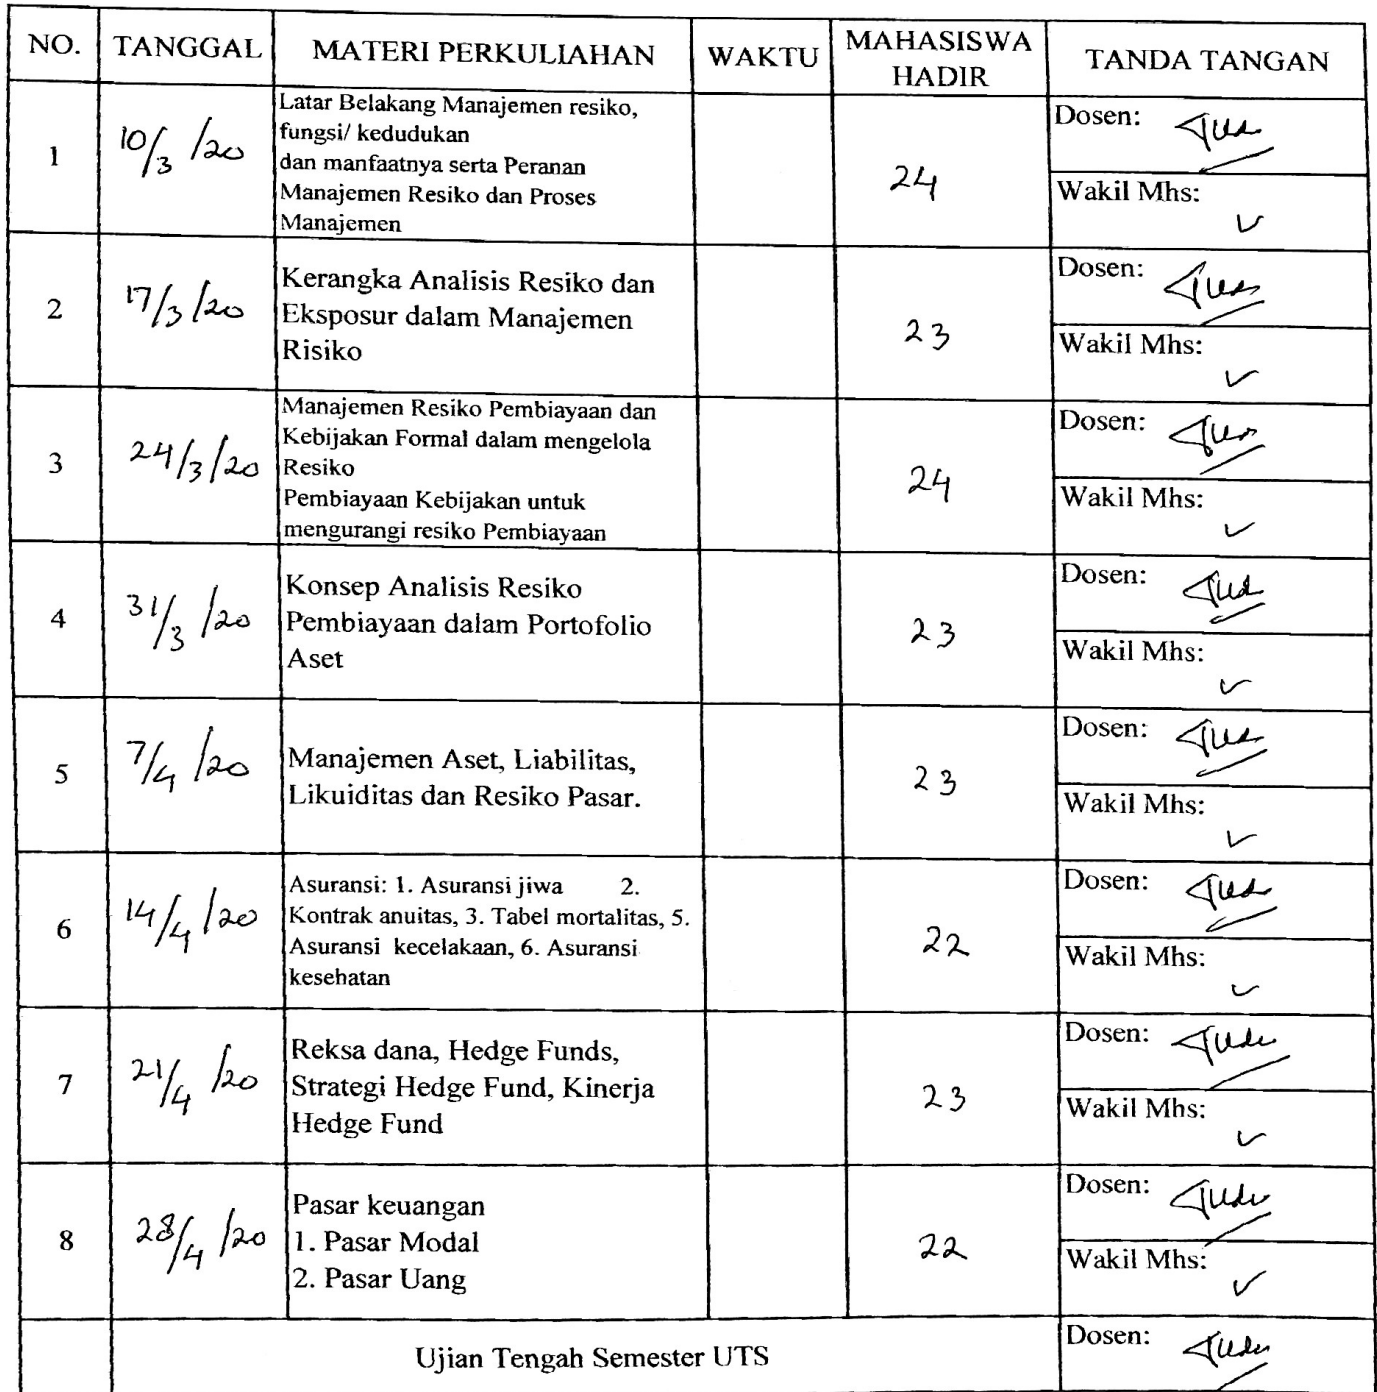 NO. TANGGAL MATERI PERKULIAHAN WAKTU MAHASISWA HADIR TANDA TANGAN
1 10/3 /20
Latar Belakang Manajemen resiko,
fungsi/ kedudukan
dan manfaatnya serta Peranan
Manajemen Resiko dan Proses
Manajemen
24
Dosen:
Wakil Mhs:
2 17/3/20
Kerangka Analisis Resiko dan
Eksposur dalam Manajemen
Risiko
23
Dosen:
Wakil Mhs:
3 24/3/20
Manajemen Resiko Pembiayaan dan
Kebijakan Formal dalam mengelola
Resiko
Pembiayaan Kebijakan untuk
mengurangi resiko Pembiayaan
24
Dosen:
Wakil Mhs:
4 31/3 /20
Konsep Analisis Resiko
Pembiayaan dalam Portofolio
Aset
23
Dosen:
Wakil Mhs:
5 7/4 /20
Manajemen Aset, Liabilitas,
Likuiditas dan Resiko Pasar.
23
Dosen:
Wakil Mhs:
6 14/4/20
Asuransi: 1. Asuransi jiwa 2.
Kontrak anuitas, 3. Tabel mortalitas, 5.
Asuransi kecelakaan, 6. Asuransi
kesehatan
22
Dosen:
Wakil Mhs:
7 21/4 /20
Reksa dana, Hedge Funds,
Strategi Hedge Fund, Kinerja
Hedge Fund
23
Dosen:
Wakil Mhs:
8 28/4 /20
Pasar keuangan
1. Pasar Modal
2. Pasar Uang
22
Dosen:
Wakil Mhs:
Ujian Tengah Semester UTS
Dosen: